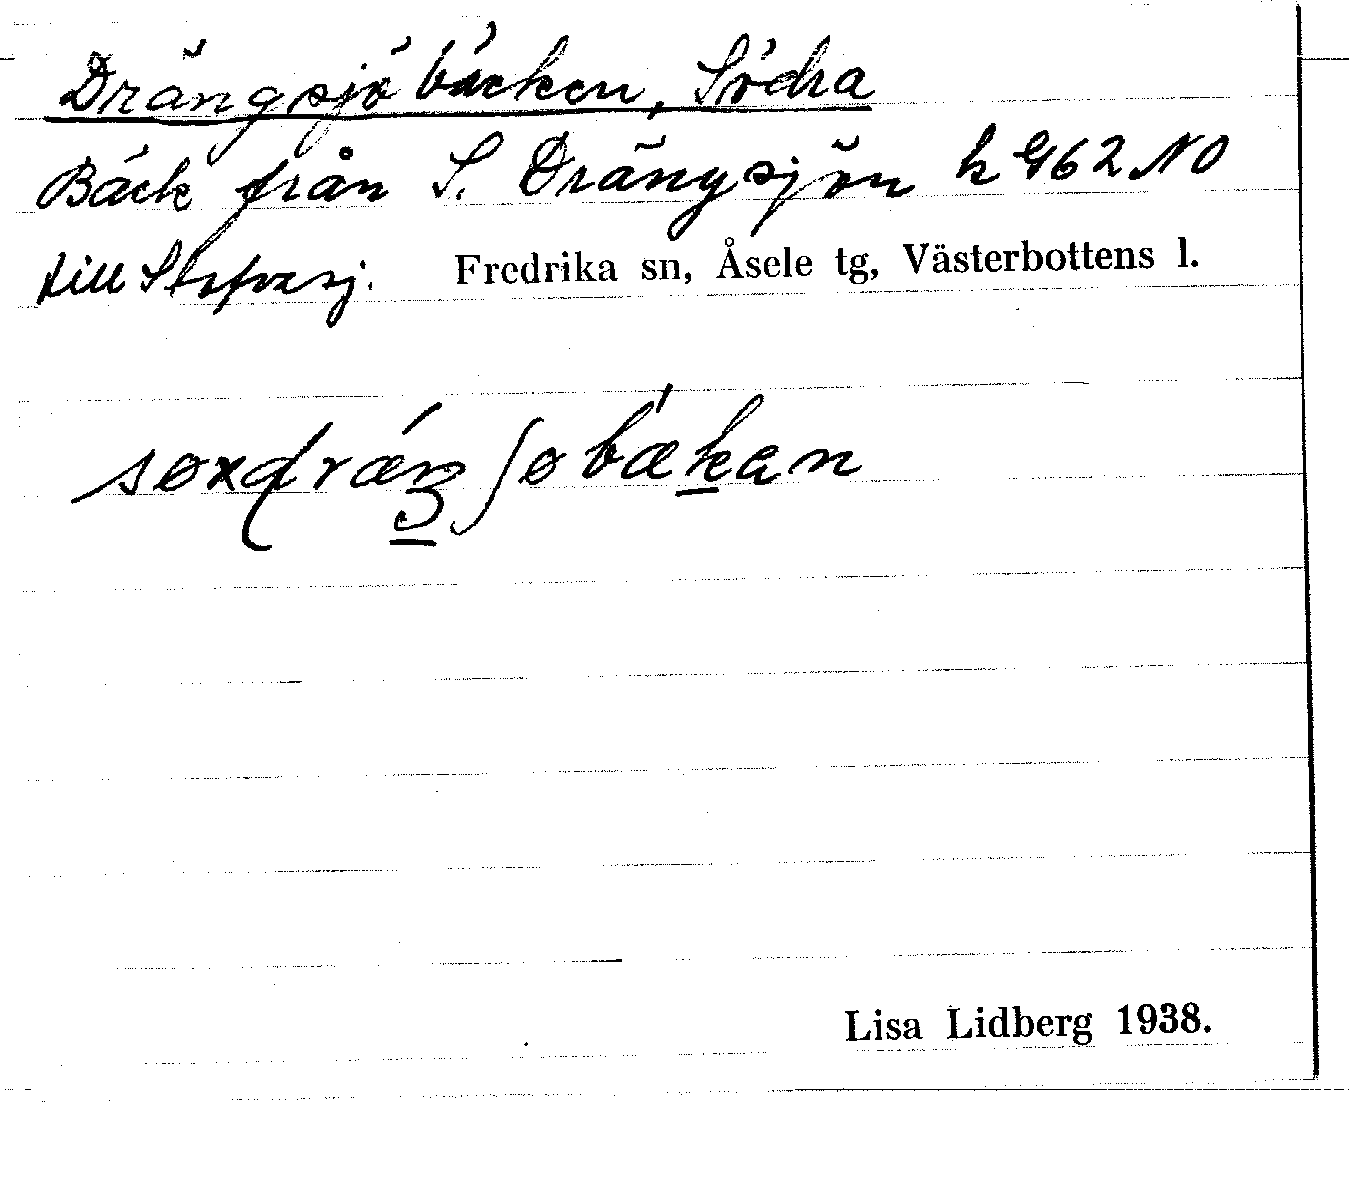 Drängsjöbäcken, Södra
Bäck från S. Drängsjön k 962 NO
till Fredrika sn, Åsele tg, Västerbottens l.
Lisa Lidberg 1938.